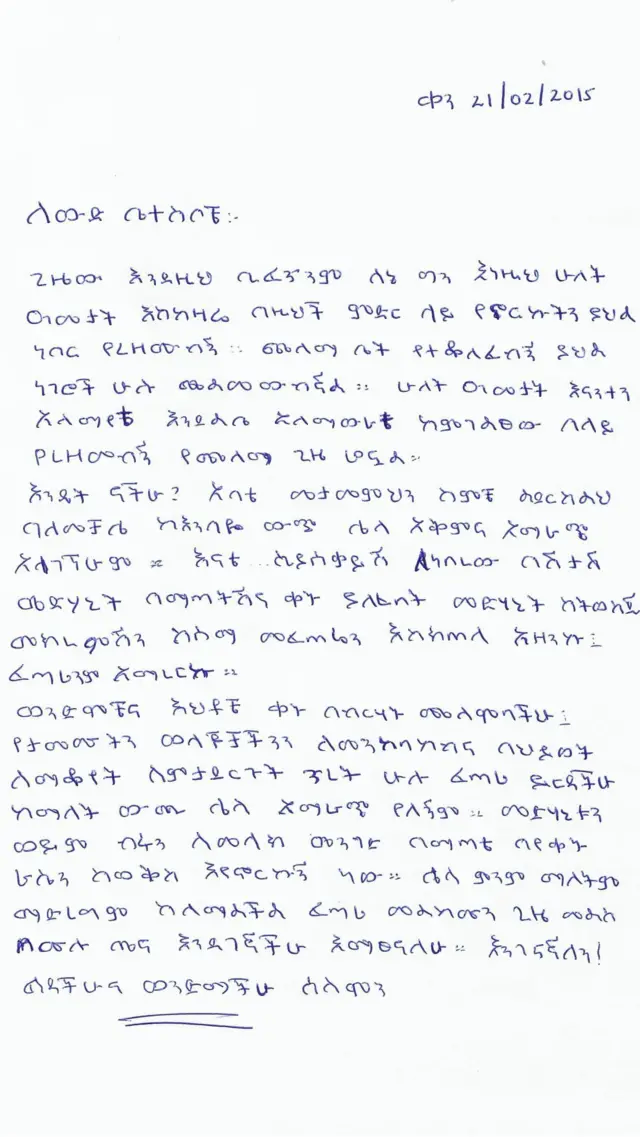 ቀን 21/02/2015
ለውድ ቤተሰቦቼ፡-
ጊዜው እንደዚህ ቢፈጅንም ለኔ ግን እነዚህ ሁለት
ዓመታት እስከዛሬ በዚህች ምድር ላይ የኖርኩትን ያህል
ነበር የረዘሙብኝ ። መልካም ቤት የተቆለፈብኝ ያህል
ነገሮች ሁሉ ጨልመውብኛል ። ሁለት ዓመታት እናንተን
አለማየቴ እንደልቤ አለማውራቴ ከምገልፀው በላይ
የረዘመብኝ የመሰለኝ ጊዜ ሆኗል።
እንዴት ናችሁ? አባቴ መታመምህን ሰምቼ ልደርስልህ
ባለመቻሌ ከእንባዬ ውጭ ሌላ አቅምና አማራጭ
አላገኘሁም ። እናቴ ስደሰቀይሽ ለነበረው በሽታሽ
መድሃኒት በማጣትሽና ቀን ያለፈበት መድሃኒት ስትወስጂ
መከራሞሽን ከሰማ መፈጠሬን እስከጠላ አዘንኩ፤
ፈጣሪንም አማረርኩ ።
ወንድሞቼና እህቶቼ ቀን በጠርሃት መጨለሞባችሁ፤
የታመሙትን ወላጆቻችንን ለመንከባከብና በህይወት
ለማቆየት ለምታደርጉት ጥረት ሁሉ ፈጣሪ ይርዳችሁ
ከማለት ውጪ ሌላ አማራጭ የለኝም ። መድሃኒቱን
ወይም ብሩን ለመላክ መንገድ በማጣቴ በየቀኑ
ራሴን ስወቅስ እየኖርኩኝ ነው ። ሌላ ምንም ማለትም
ማድረግም ስለማልችል ፈጣሪ መልካሙን ጊዜ መልሶ
በሙሉ ጤና እንዲያገናኘን እማፀናለሁ ። እንገናኛለን!
ልጃችሁና ወንድማችሁ ሰለሞን